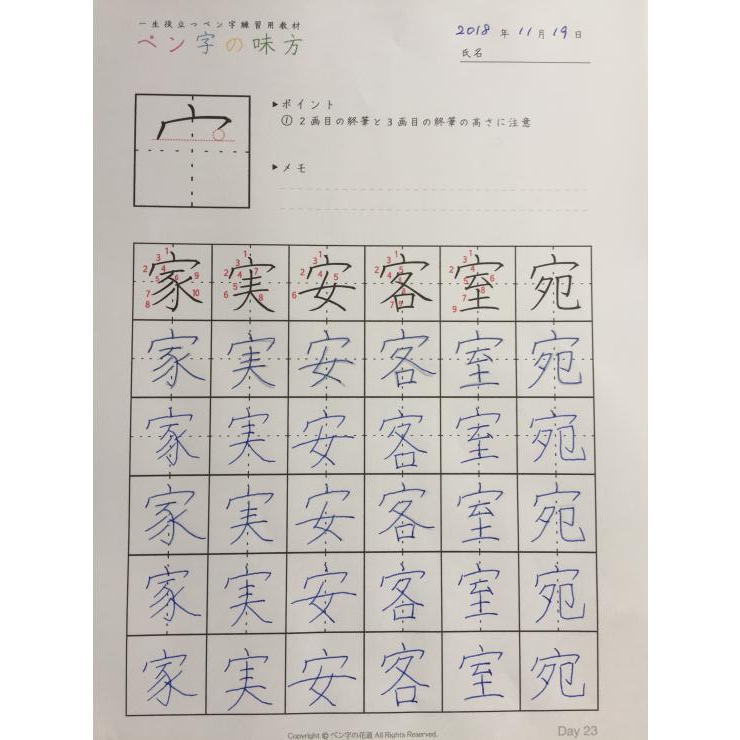 一生役立つペン字練習用教材
ペン字の味方
2018 年 11 月 19 日
氏名
▶ポイント
① 2画目の終筆と3画目の終筆の高さに注意
▶メモ
宀
家 実 安 客 室 宛
家 実 安 客 室 宛
家 実 安 客 室 宛
家 実 安 客 室 宛
家 実 安 客 室 宛
家 実 安 客 室 宛
Copyright © ペン字の花道 All Rights Reserved.
Day 23